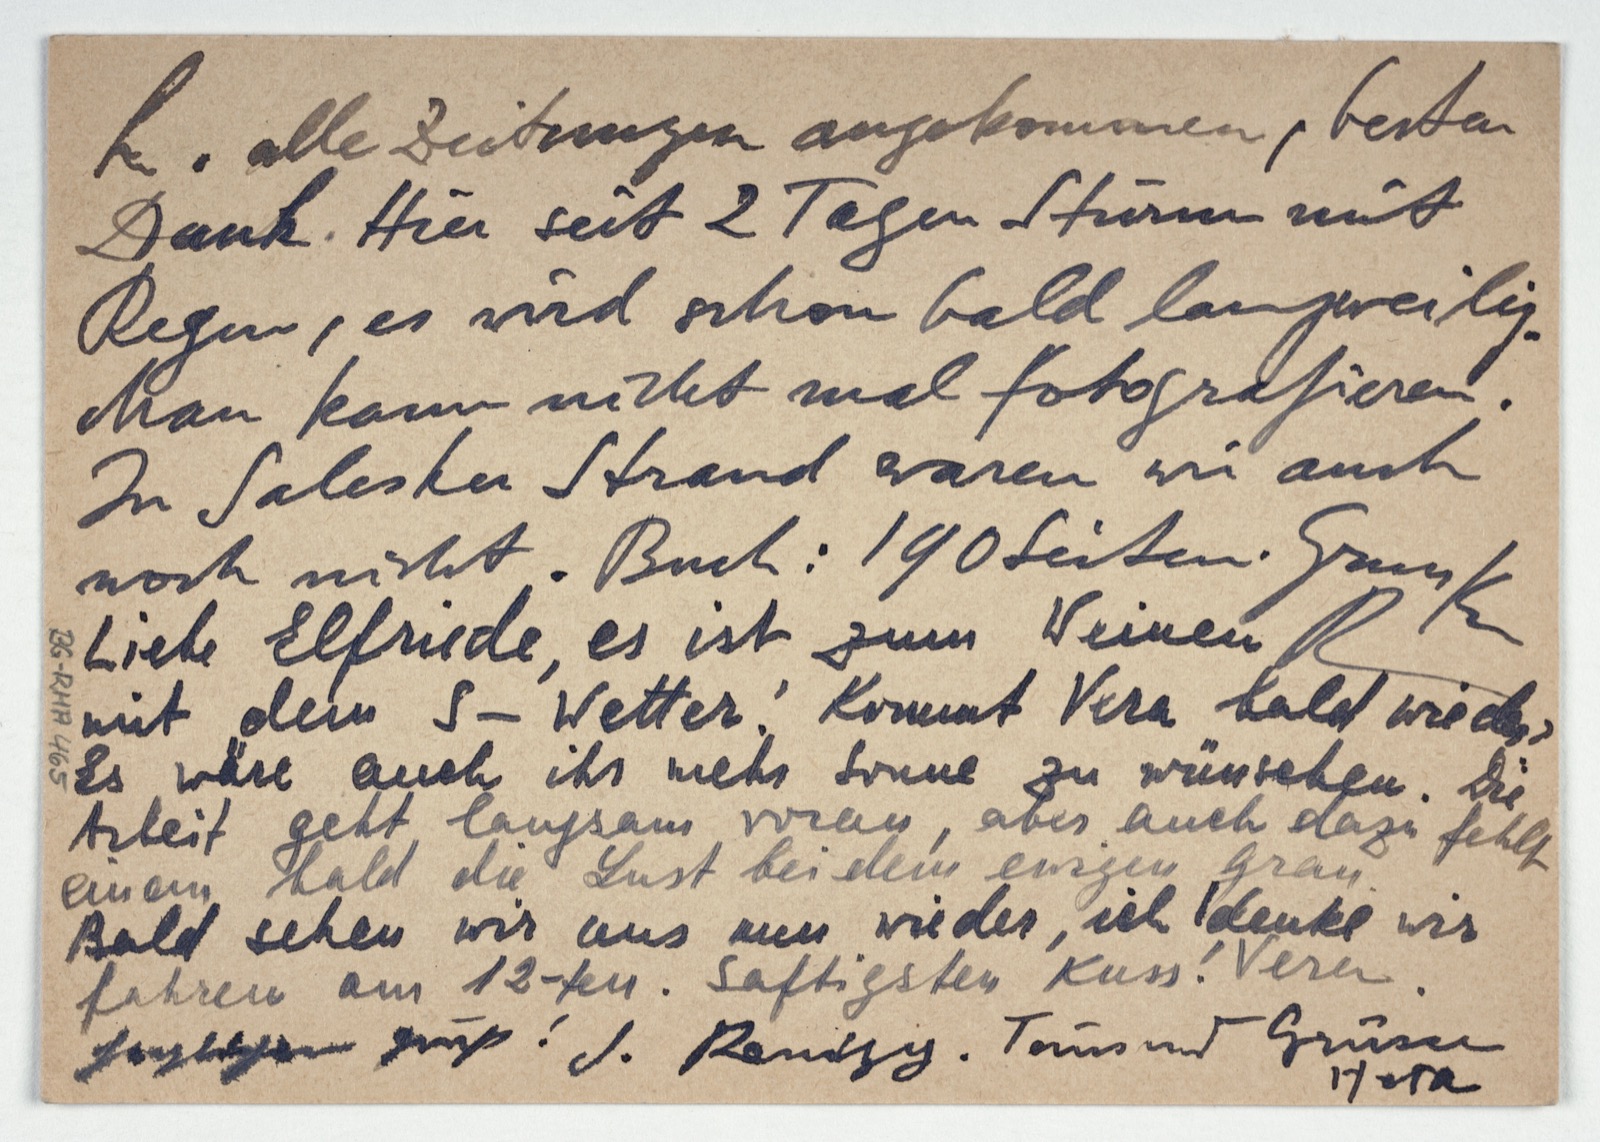 h. alle Zeitungen angekommen, besten
Dank. Hier seit 2 Tagen Sturm mit
Regen, es wird schon bald langweilig.
Man kann nicht mal fotografieren.
In Salesker Strand waren wir auch
noch nicht. Buch: 190 Seiten. Gruss
R
Liebe Elfriede, es ist zum Weinen
mit dem S- Wetter! Kommt Vera bald wieder?
Es wäre auch ihr mehr Sonne zu wünschen. Die
Arbeit geht langsam voran, aber auch dazu fehlt
einem bald die Lust bei dem ewigen Grau.
Bald sehen wir uns nun wieder, ich denke wir
fahren am 12-ten. Saftigsten Kuss! Vera.
! J. Tausend Grüsse
Hera
BG-RHA 465